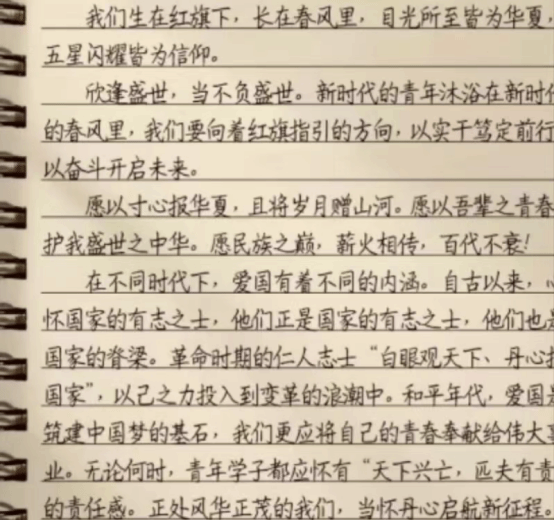 我们生在红旗下，长在春风里，目光所至皆为华夏，
五星闪耀皆为信仰。
欣逢盛世，当不负盛世。新时代的青年沐浴在新时代
的春风里，我们要向着红旗指引的方向，以实干笃定前行
以奋斗开启未来。
愿以寸心报华夏，且将岁月赠山河。愿以吾辈之青春
护我盛世之中华。愿民族之巅，薪火相传，百代不衰！
在不同时代下，爱国有着不同的内涵。自古以来，心
怀国家的有志之士，他们正是国家的有志之士，他们也是
国家的脊梁。革命时期的仁人志士“白眼观天下、丹心报
国家”，以己之力投入到变革的浪潮中。和平年代，爱国是
筑建中国梦的基石，我们更应将自己的青春奉献给伟大事
业。无论何时，青年学子都应怀有“天下兴亡，匹夫有责
的责任感。正处风华正茂的我们，当怀丹心启航新征程。